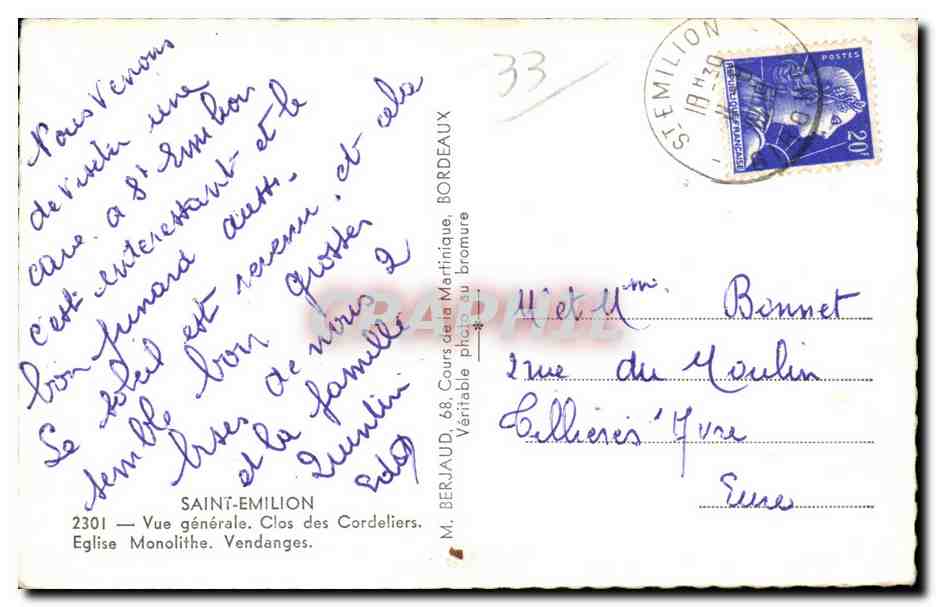 Nous venons
de visiter une
cave à St Emilion
c'est interessant et le
bon pinard aussi.
Le soleil est revenu, et cela
semble bon grosses
bises de nous 2
et la famille
Quentin
SAINT-EMILION
2301 — Vue générale. Clos des Cordeliers.
Eglise Monolithe. Vendanges.
M. BERJAUD, 68, Cours de la Martinique, BORDEAUX
Véritable photo au bromure
33
ST EMILION
18 H 30
GIRONDE
POSTES
REPUBLIQUE FRANÇAISE
20F
Mr et Mme Bonnet
2 rue du Moulin
Tillières s/ Avre
Eure
CRAPHIL